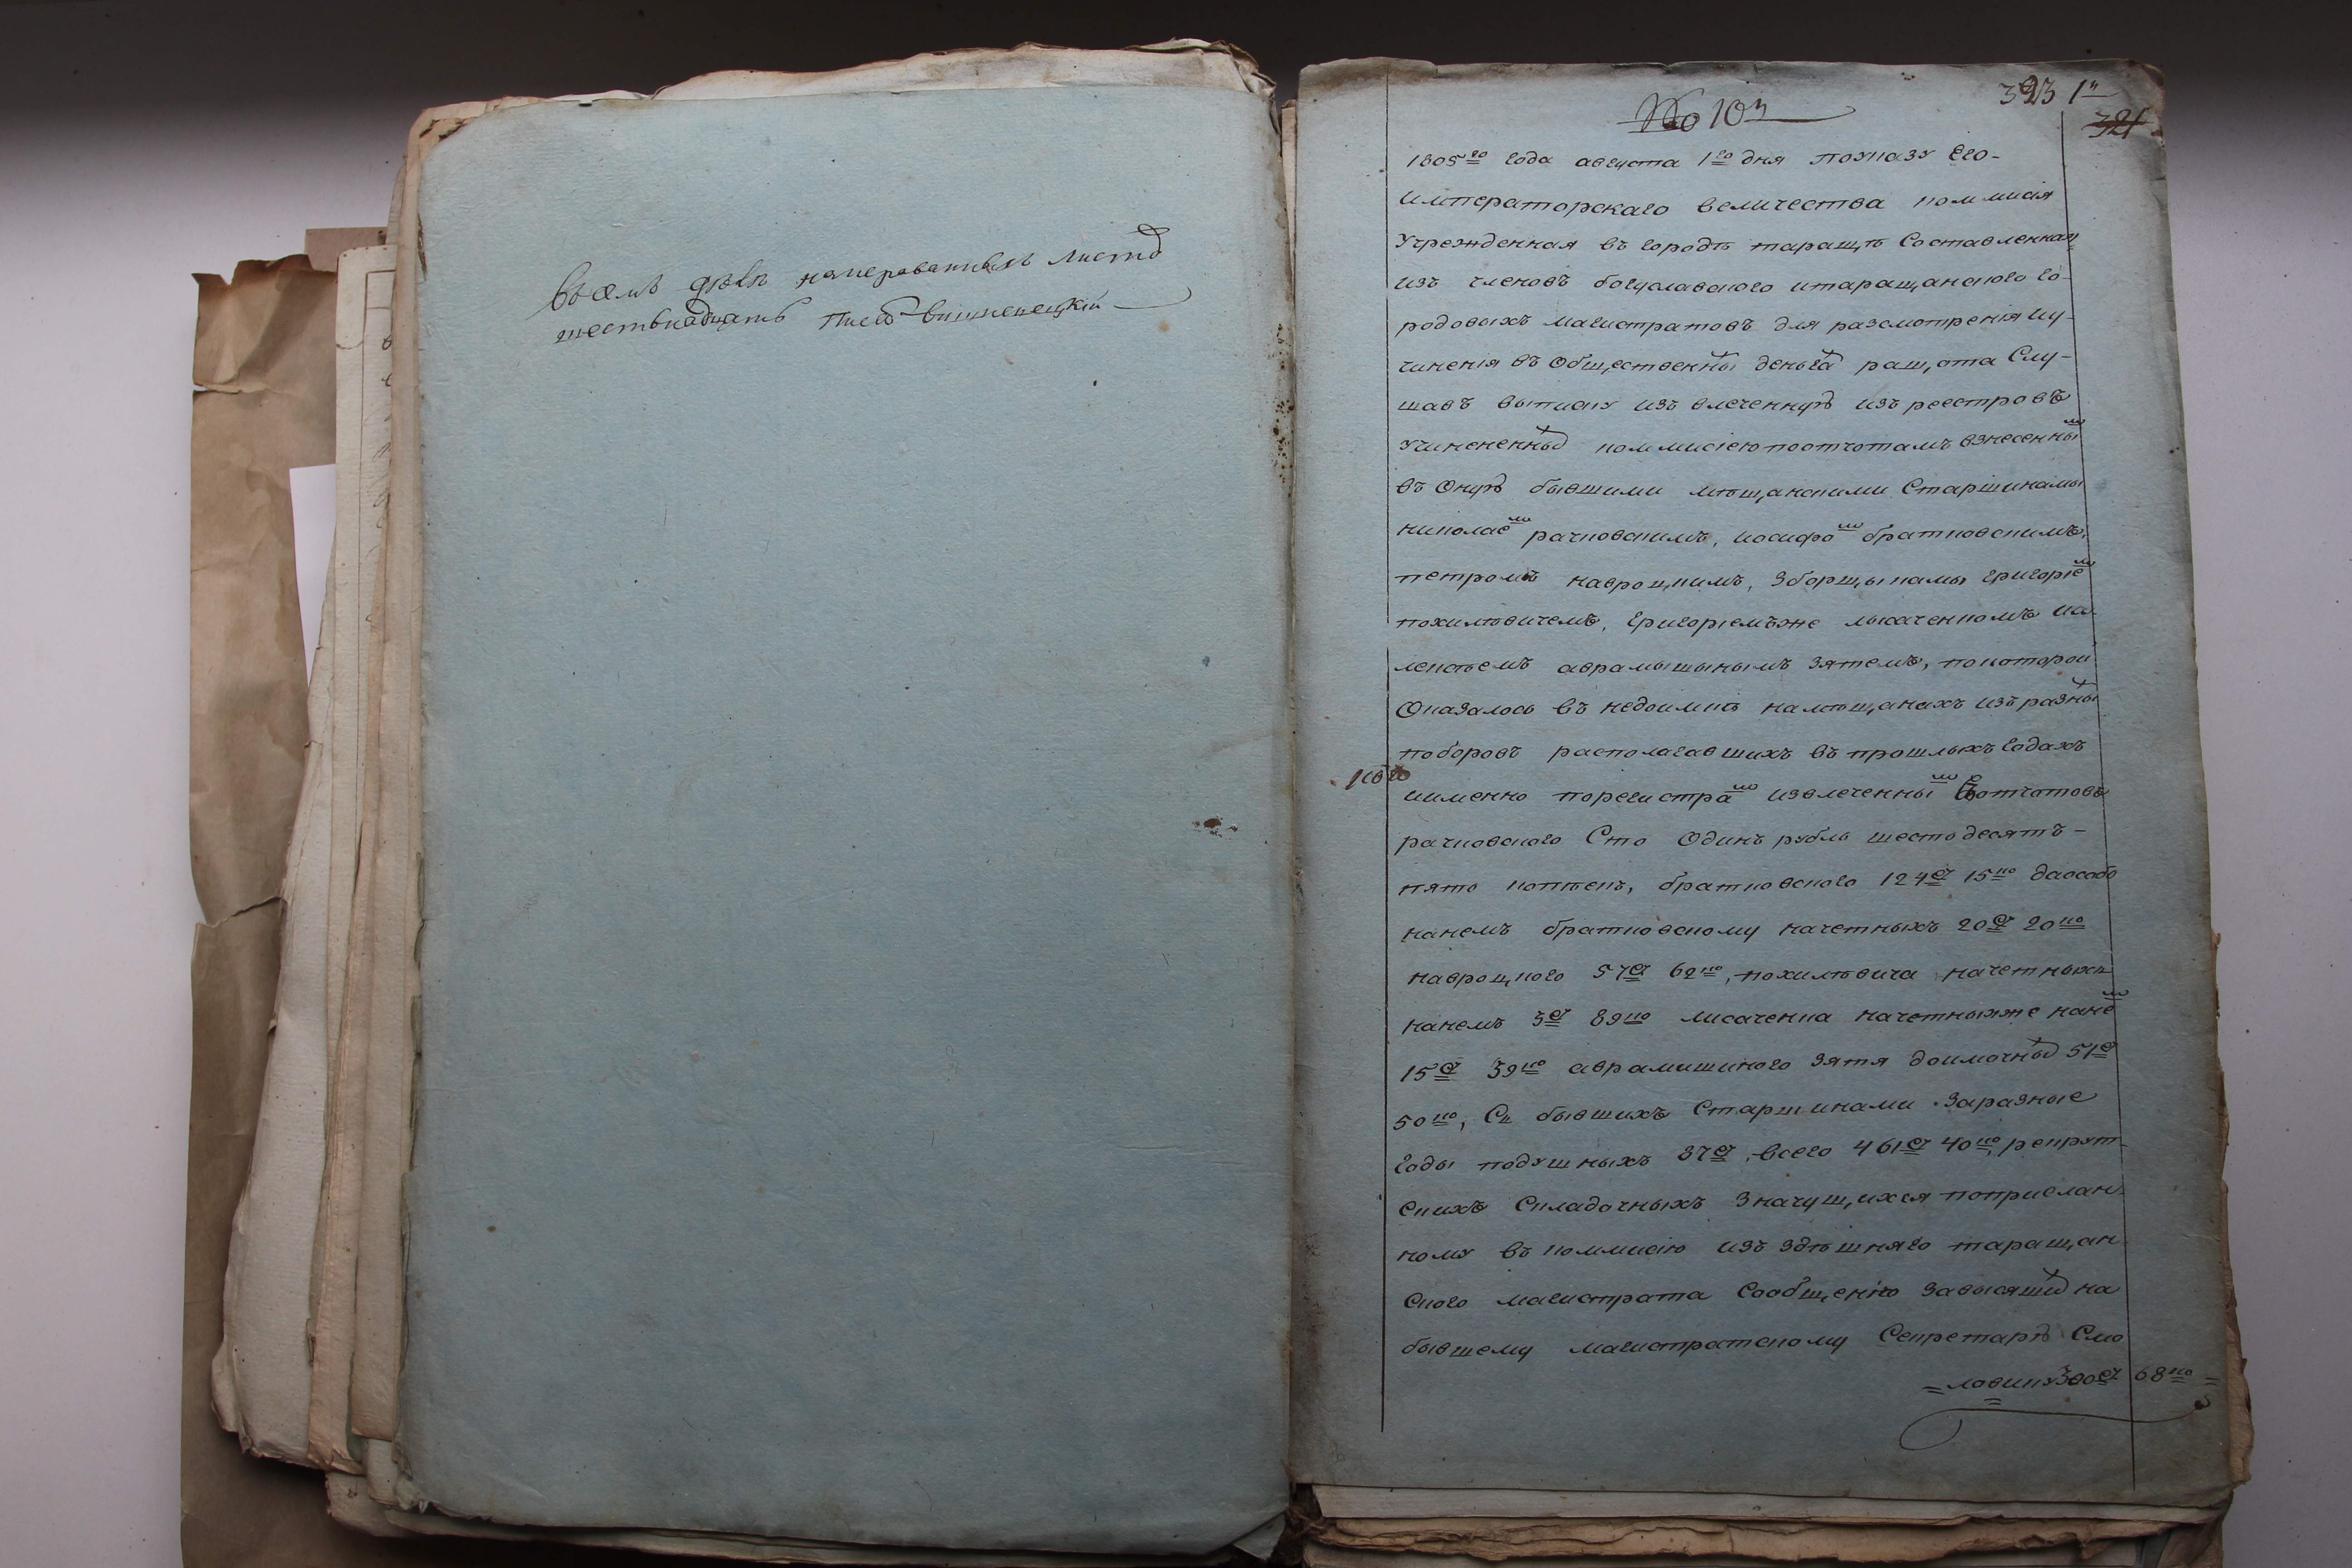 Въ семъ дѣлѣ нумерованныхъ листовъ
шестьнадцать Писаръ Вишневецкій
№ 10й
323 1й
321
1805го года августа 1го дня поуказу Его-
императорскаго величества коммисія
Учрежденная въ городѣ таращѣ Составленная
изъ членовъ богуславского итаращанского го-
родовыхъ магистратовъ для разсмотренія иу-
чиненія въ Общественныхъ деньгахъ ращота Слу-
шавъ выписку изъ влеченную изъ реестровъ
Учиненныхъ коммисіею поотчотамъ взнесеннымъ
въ Оную бывшими мѣщанскими Старшинамы
николаемъ рачковскимъ, иосифомъ братковскимъ,
петромъ навроцкимъ, зборщыкамы григоріемъ
похилѣвичемъ, григоріемъже лысаченкомъ иа-
лексѣемъ аврамышынымъ зятемъ, покоторой
Оказалось въ недоимкѣ намѣщанахъ изъ разныхъ
поборовъ располагавшихъ въ прошлыхъ годахъ
иименно порегистрамъ извлеченнымъ изъ отчотовъ
рачковского Сто Одинъ рубль шестьдесятъ-
пять копѣекъ, братковского 124р 15ко даособо
нанемъ братковскому начетныхъ 20р 20ко
навроцкого 57р 62ко, похилѣвича начетныхъ
нанемъ 3р 89ко лисаченка начетныхже нанемъ
15р 39ко аврамишиного зятя доимочныхъ 51р
50ко, Съ бывшихъ Старшинами заразные
годы подушныхъ 87р всего 461р 40ко, рекрут-
скихъ Складочныхъ Значущихся поприслан-
ному въ коммисію изъ здѣшняго таращан-
ского магистрата Сообщенію Зависящихъ на
бывшему магистратскому Секретарю Смо
=ловику 300р 68ко=